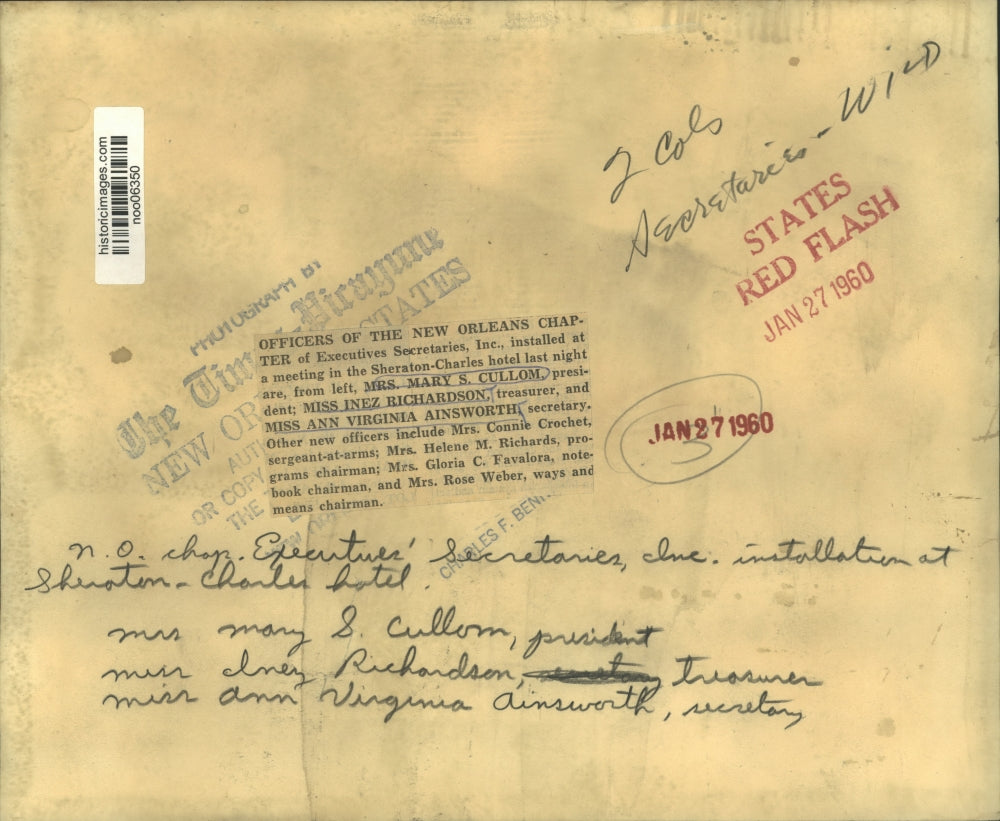 2 Cols
Secretaries - Wild
historicimages.com
noo06350
STATES
RED FLASH
JAN 27 1960
PHOTOGRAPH BY
The Times-Picayune
NEW OR
STATES
AUT
OR COPY
THE
OFFICERS OF THE NEW ORLEANS CHAP-
TER of Executives Secretaries, Inc., installed at
a meeting in the Sheraton-Charles hotel last night
are, from left, MRS. MARY S. CULLOM, presi-
dent; MISS INEZ RICHARDSON, treasurer, and
MISS ANN VIRGINIA AINSWORTH, secretary.
Other new officers include Mrs. Connie Crochet,
sergeant-at-arms; Mrs. Helene M. Richards, pro-
grams chairman; Mrs. Gloria C. Favalora, note-
book chairman, and Mrs. Rose Weber, ways and
means chairman.
JAN 27 1960
3
CHARLES F. BENN
N.O. chap. Executives' Secretaries, Inc. installation at
Sheraton-Charles hotel.
Mrs Mary S. Cullom, president
Miss Inez Richardson, treasurer
Miss Ann Virginia Ainsworth, secretary